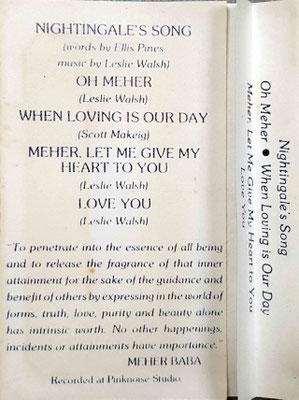 NIGHTINGALE'S SONG
(words by Ellis Pines
music by Leslie Walsh)
OH MEHER
(Leslie Walsh)
WHEN LOVING IS OUR DAY
(Scott Makeig)
MEHER, LET ME GIVE MY
HEART TO YOU
(Leslie Walsh)
LOVE YOU
(Leslie Walsh)
"To penetrate into the essence of all being
and to release the fragrance of that inner
attainment for the sake of the guidance and
benefit of others by expressing in the world of
forms, truth, love, purity and beauty alone
has intrinsic worth. No other happenings,
incidents or attainments have importance."
MEHER BABA
Recorded at Pinknoise Studio
Nightingale's Song
Oh Meher ● When Loving is Our Day
Meher, Let Me Give My Heart to You
Love You